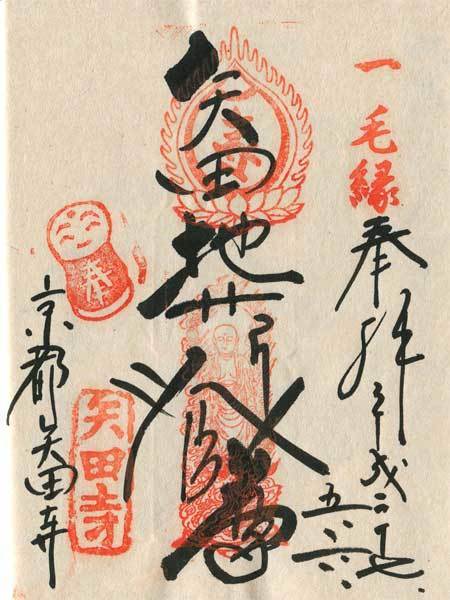 一毛縁
奉拝 平成二十七
五
矢田地蔵尊
奉
京都 矢田寺
矢田寺